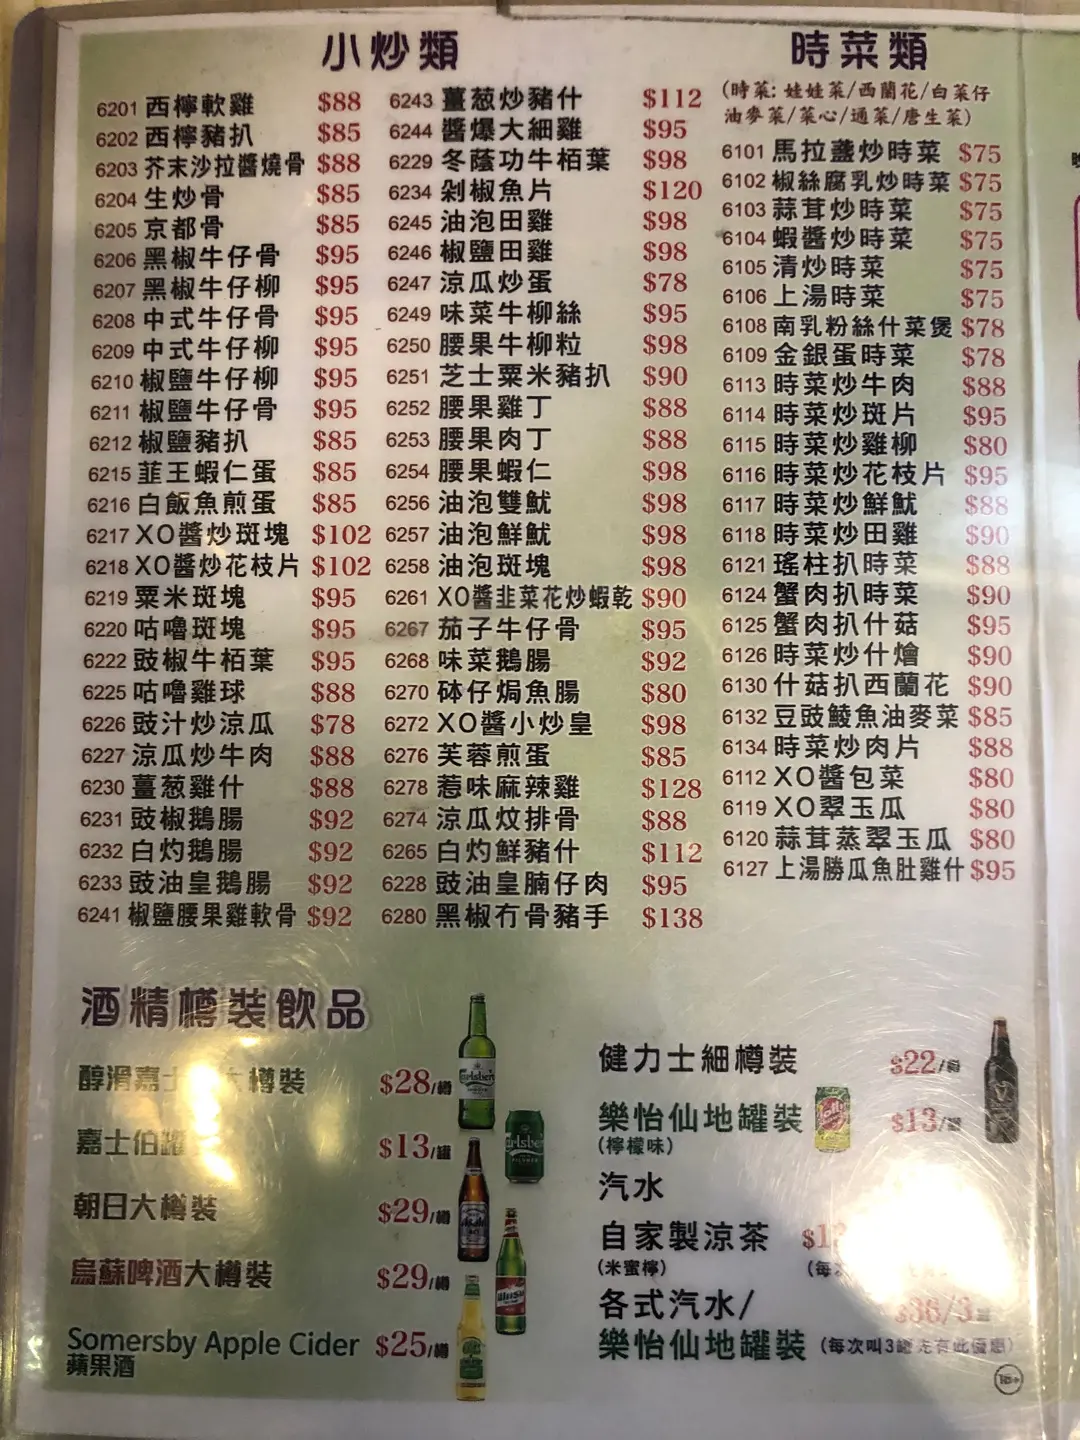 小炒類
6201 西檸軟雞 $88
6202 西檸豬扒 $85
6203 芥末沙拉醬燒骨 $88
6204 生炒骨 $85
6205 京都骨 $85
6206 黑椒牛仔骨 $95
6207 黑椒牛仔柳 $95
6208 中式牛仔骨 $95
6209 中式牛仔柳 $95
6210 椒鹽牛仔柳 $95
6211 椒鹽牛仔骨 $95
6212 椒鹽豬扒 $85
6215 韮王蝦仁蛋 $85
6216 白飯魚煎蛋 $85
6217 XO醬炒斑塊 $102
6218 XO醬炒花枝片 $102
6219 粟米斑塊 $95
6220 咕嚕斑塊 $95
6222 豉椒牛栢葉 $95
6225 咕嚕雞球 $88
6226 豉汁炒涼瓜 $78
6227 涼瓜炒牛肉 $88
6230 薑葱雞什 $88
6231 豉椒鵝腸 $92
6232 白灼鵝腸 $92
6233 豉油皇鵝腸 $92
6241 椒鹽腰果雞軟骨 $92
6243 薑葱炒豬什 $112
6244 醬爆大細雞 $95
6229 冬蔭功牛栢葉 $98
6234 剁椒魚片 $120
6245 油泡田雞 $98
6246 椒鹽田雞 $98
6247 涼瓜炒蛋 $78
6249 味菜牛柳絲 $95
6250 腰果牛柳粒 $98
6251 芝士粟米豬扒 $90
6252 腰果雞丁 $88
6253 腰果肉丁 $88
6254 腰果蝦仁 $98
6256 油泡雙魷 $98
6257 油泡鮮魷 $98
6258 油泡斑塊 $98
6261 XO醬韭菜花炒蝦乾 $90
6267 茄子牛仔骨 $95
6268 味菜鵝腸 $92
6270 砵仔焗魚腸 $80
6272 XO醬小炒皇 $98
6276 芙蓉煎蛋 $85
6278 惹味麻辣雞 $128
6274 涼瓜炆排骨 $88
6265 白灼鮮豬什 $112
6228 豉油皇腩仔肉 $95
6280 黑椒冇骨豬手 $138
時菜類
(時菜: 娃娃菜/西蘭花/白菜仔
油麥菜/菜心/通菜/唐生菜)
6101 馬拉盞炒時菜 $75
6102 椒絲腐乳炒時菜 $75
6103 蒜茸炒時菜 $75
6104 蝦醬炒時菜 $75
6105 清炒時菜 $75
6106 上湯時菜 $75
6108 南乳粉絲什菜煲 $78
6109 金銀蛋時菜 $78
6113 時菜炒牛肉 $88
6114 時菜炒斑片 $95
6115 時菜炒雞柳 $80
6116 時菜炒花枝片 $95
6117 時菜炒鮮魷 $88
6118 時菜炒田雞 $90
6121 瑤柱扒時菜 $88
6124 蟹肉扒時菜 $90
6125 蟹肉扒什菇 $95
6126 時菜炒什燴 $90
6130 什菇扒西蘭花 $90
6132 豆豉鯪魚油麥菜 $85
6134 時菜炒肉片 $88
6112 XO醬包菜 $80
6119 XO翠玉瓜 $80
6120 蒜茸蒸翠玉瓜 $80
6127 上湯勝瓜魚肚雞什 $95
酒精樽裝飲品
醇滑嘉士 大樽裝 $28/樽
嘉士伯罐 $13/罐
朝日大樽裝 $29/樽
烏蘇啤酒大樽裝 $29/樽
Somersby Apple Cider $25/樽
蘋果酒
健力士細樽裝 $22/樽
樂怡仙地罐裝 $13/罐
(檸檬味)
汽水
自家製涼茶
(米蜜檸) (每
各式汽水/
樂怡仙地罐裝 (每次叫3罐先有此優惠)
18+